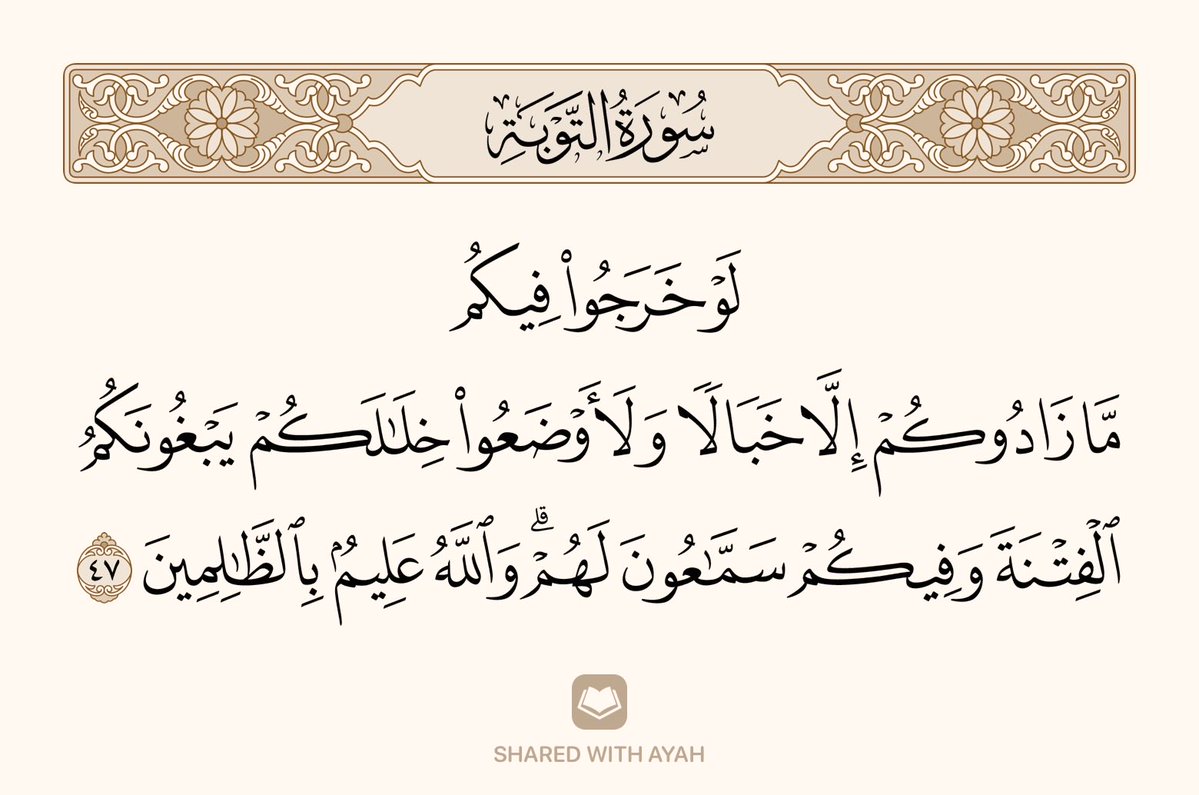 سُورَةُ التَّوۡبَةِ
لَوۡ خَرَجُواْ فِيكُم
مَّا زَادُوكُمۡ إِلَّا خَبَالٗا وَلَأَوۡضَعُواْ خِلَٰلَكُمۡ يَبۡغُونَكُمُ
ٱلۡفِتۡنَةَ وَفِيكُمۡ سَمَّٰعُونَ لَهُمۡۗ وَٱللَّهُ عَلِيمُۢ بِٱلظَّٰلِمِينَ ٤٧
SHARED WITH AYAH